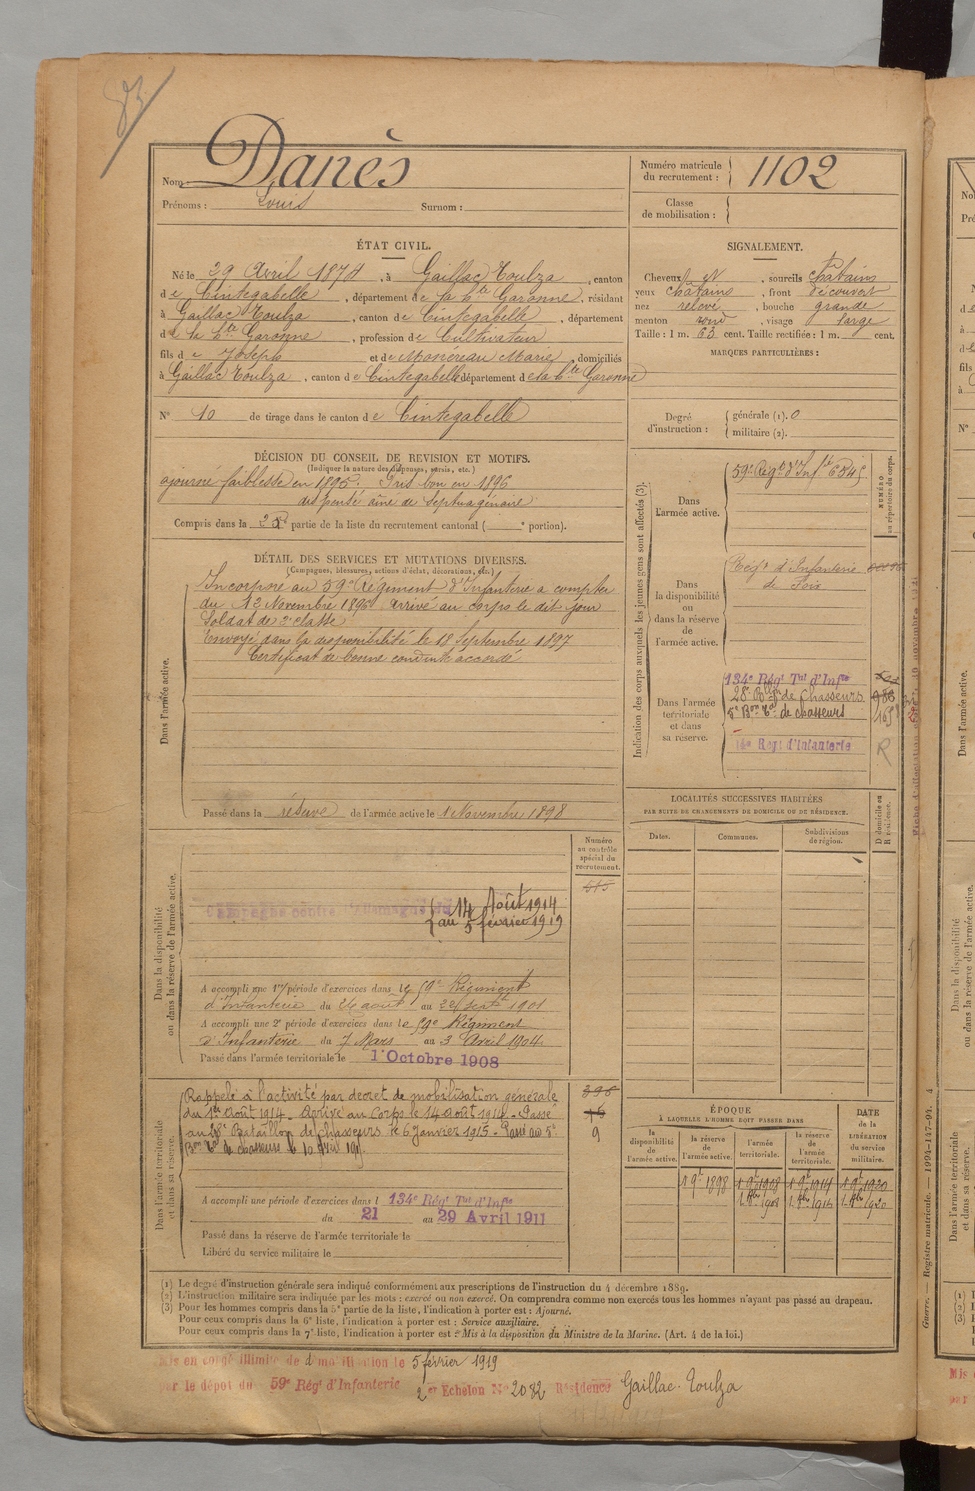 83
Nom : Danès
Prénoms : Louis Surnom :
Numéro matricule du recrutement : 1102
Classe de mobilisation :
ÉTAT CIVIL.
Né le 29 Avril 1874, à Gaillac Toulza, canton
de Cintegabelle, département de la Hte Garonne, résidant
à Gaillac Toulza, canton de Cintegabelle, département
de la Hte Garonne, profession de Cultivateur
fils de Joseph et de Moncreau Marie, domiciliés
à Gaillac Toulza, canton de Cintegabelle département de la Hte Garonne
N° 10 de tirage dans le canton de Cintegabelle
SIGNALEMENT.
Cheveux et, sourcils châtains
yeux châtains, front découvert
nez relevé, bouche grande
menton rond, visage large
Taille : 1 m. 63 cent. Taille rectifiée : 1 m. cent.
MARQUES PARTICULIÈRES :
Degré d'instruction : générale (1). 0
militaire (2).
DÉCISION DU CONSEIL DE REVISION ET MOTIFS.
(Indiquer la nature des dispenses, sursis, etc.)
ajourné faiblesse en 1895. Pris bon en 1896
dispensé aîné de septuagénaire
Compris dans la 2e partie de la liste du recrutement cantonal ( e portion).
DÉTAIL DES SERVICES ET MUTATIONS DIVERSES.
(Campagnes, blessures, actions d'éclat, décorations, etc.)
Dans l'armée active.
Incorporé au 59e Régiment d'Infanterie a compter
du Novembre 1896 arrivé au corps le dit jour
Soldat de 2e classe
Envoyé dans la disponibilité le 18 Septembre 1897
Certificat de bonne conduite accordé
Passé dans la réserve de l'armée active le 1 Novembre 1898
Indication des corps auxquels les jeunes gens sont affectés (3).
NUMÉRO au répertoire du corps.
Dans l'armée active.
59e Régt d'Infie 6545
Dans la disponibilité ou dans la réserve de l'armée active.
Régt d'Infanterie
de Foix
Dans l'armée territoriale et dans sa réserve.
134e Régt Tal d'Infie
28e Bllon de Chasseurs 986
5e Bon Tal de chasseurs
14e Régt d'Infanterie R
LOCALITÉS SUCCESSIVES HABITÉES
PAR SUITE DE CHANGEMENTS DE DOMICILE OU DE RÉSIDENCE.
Dates. Communes. Subdivisions de région. D domicile ou R résidence.
Dans la disponibilité ou dans la réserve de l'armée active.
Numéro au contrôle spécial du recrutement.
615
Campagne contre l'Allemagne du 14 Août 1914
au 5 février 1919
A accompli une 1re période d'exercices dans le 59e Régiment
d'Infanterie du 26 août au 22 septe 1901
A accompli une 2e période d'exercices dans le 59e Régiment
d'Infanterie du 7 Mars au 3 Avril 1904.
Passé dans l'armée territoriale le 1er Octobre 1908
Dans l'armée territoriale et dans sa réserve.
Rappelé à l'activité par décret de mobilisation générale
du 1er août 1914. Arrivé au Corps le 14 août 1914. Passé
au 28e Bataillon de chasseurs le 6 Janvier 1915 - Passé au 5e
Bon Tal de chasseurs le 10
398
16
9
A accompli une période d'exercices dans l 134e Régt Tal d'Infie
du 21 au 29 Avril 1911
Passé dans la réserve de l'armée territoriale le
Libéré du service militaire le
ÉPOQUE
À LAQUELLE L'HOMME DOIT PASSER DANS
DATE de la LIBÉRATION du service militaire.
la disponibilité de l'armée active. la réserve de l'armée active. l'armée territoriale. la réserve de l'armée territoriale.
1 9e 1898 1 9e 1908 1 9e 1914 1 9e 1920
1 8bre 1908 1 8bre 1914 1 8bre 1920
(1) Le degré d'instruction générale sera indiqué conformément aux prescriptions de l'instruction du 4 décembre 1889.
(2) L'instruction militaire sera indiquée par les mots : exercé ou non exercé. On comprendra comme non exercés tous les hommes n'ayant pas passé au drapeau.
(3) Pour les hommes compris dans la 5e partie de la liste, l'indication à porter est : Ajourné.
Pour ceux compris dans la 6e liste, l'indication à porter est : Service auxiliaire.
Pour ceux compris dans la 7e liste, l'indication à porter est : Mis à la disposition du Ministre de la Marine. (Art. 4 de la loi.)
Guerre. — Registre matricule. — 1994-147-94. 4
Mis en congé illimité de démobilisation le 5 février 1919
par le dépôt du 59e Régt d'Infanterie 2er Echelon No 2082 Résidence Gaillac-Toulza